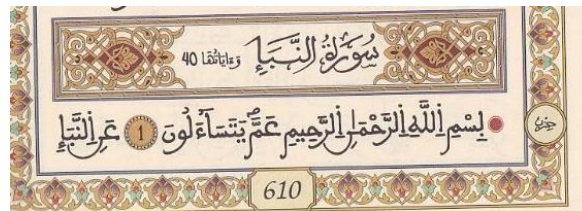 سُورَةُ النَّبَإِ وَءَايَاتُهَا 40
بِسْمِ اِللَّهِ اِلرَّحْمَٰنِ اِلرَّحِيمِ عَمَّ يَتَسَآءَلُونَ 1 عَنِ اِلنَّبَإِ
حزب
610